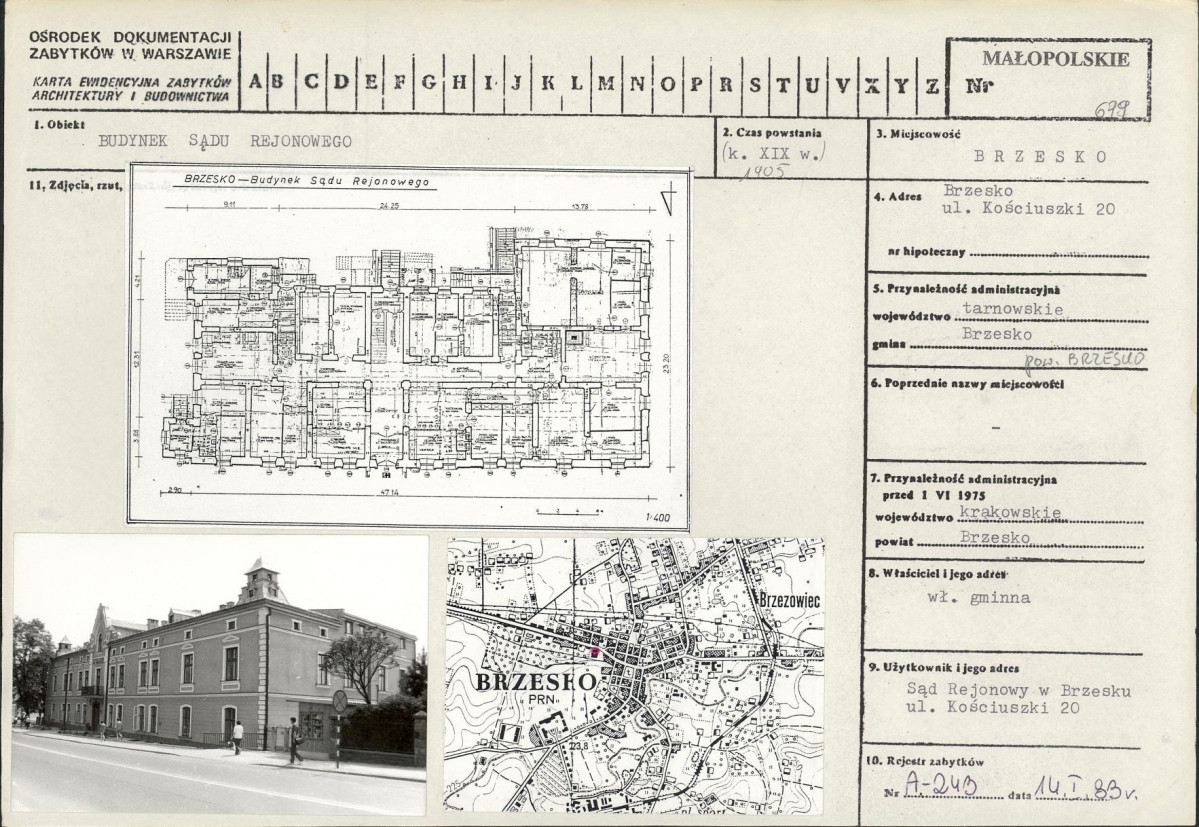 OŚRODEK DOKUMENTACJI
ZABYTKÓW W WARSZAWIE
KARTA EWIDENCYJNA ZABYTKÓW
ARCHITEKTURY I BUDOWNICTWA
A B C D E F G H I J K L M N O P R S T U V X Y Z
MAŁOPOLSKIE
Nr
679
1. Obiekt
BUDYNEK SĄDU REJONOWEGO
2. Czas powstania
(k. XIX w.)
1905
3. Miejscowość
BRZESKO
4. Adres Brzesko
ul. Kościuszki 20
nr hipoteczny
5. Przynależność administracyjna
województwo tarnowskie
gmina Brzesko
pow. BRZESKO
6. Poprzednie nazwy miejscowości
-
7. Przynależność administracyjna
przed 1 VI 1975
województwo krakowskie
powiat Brzesko
8. Właściciel i jego adres
wł. gminna
9. Użytkownik i jego adres
Sąd Rejonowy w Brzesku
ul. Kościuszki 20
10. Rejestr zabytków
Nr A-243 data 14.I.83 r.
11. Zdjęcia, rzut,
BRZESKO — Budynek Sądu Rejonowego
9.11 24.25 13.78
4.21
12.31
3.86
23.20
2.90 47.14
1:400
Brzezowiec
BRZESKO
PRN